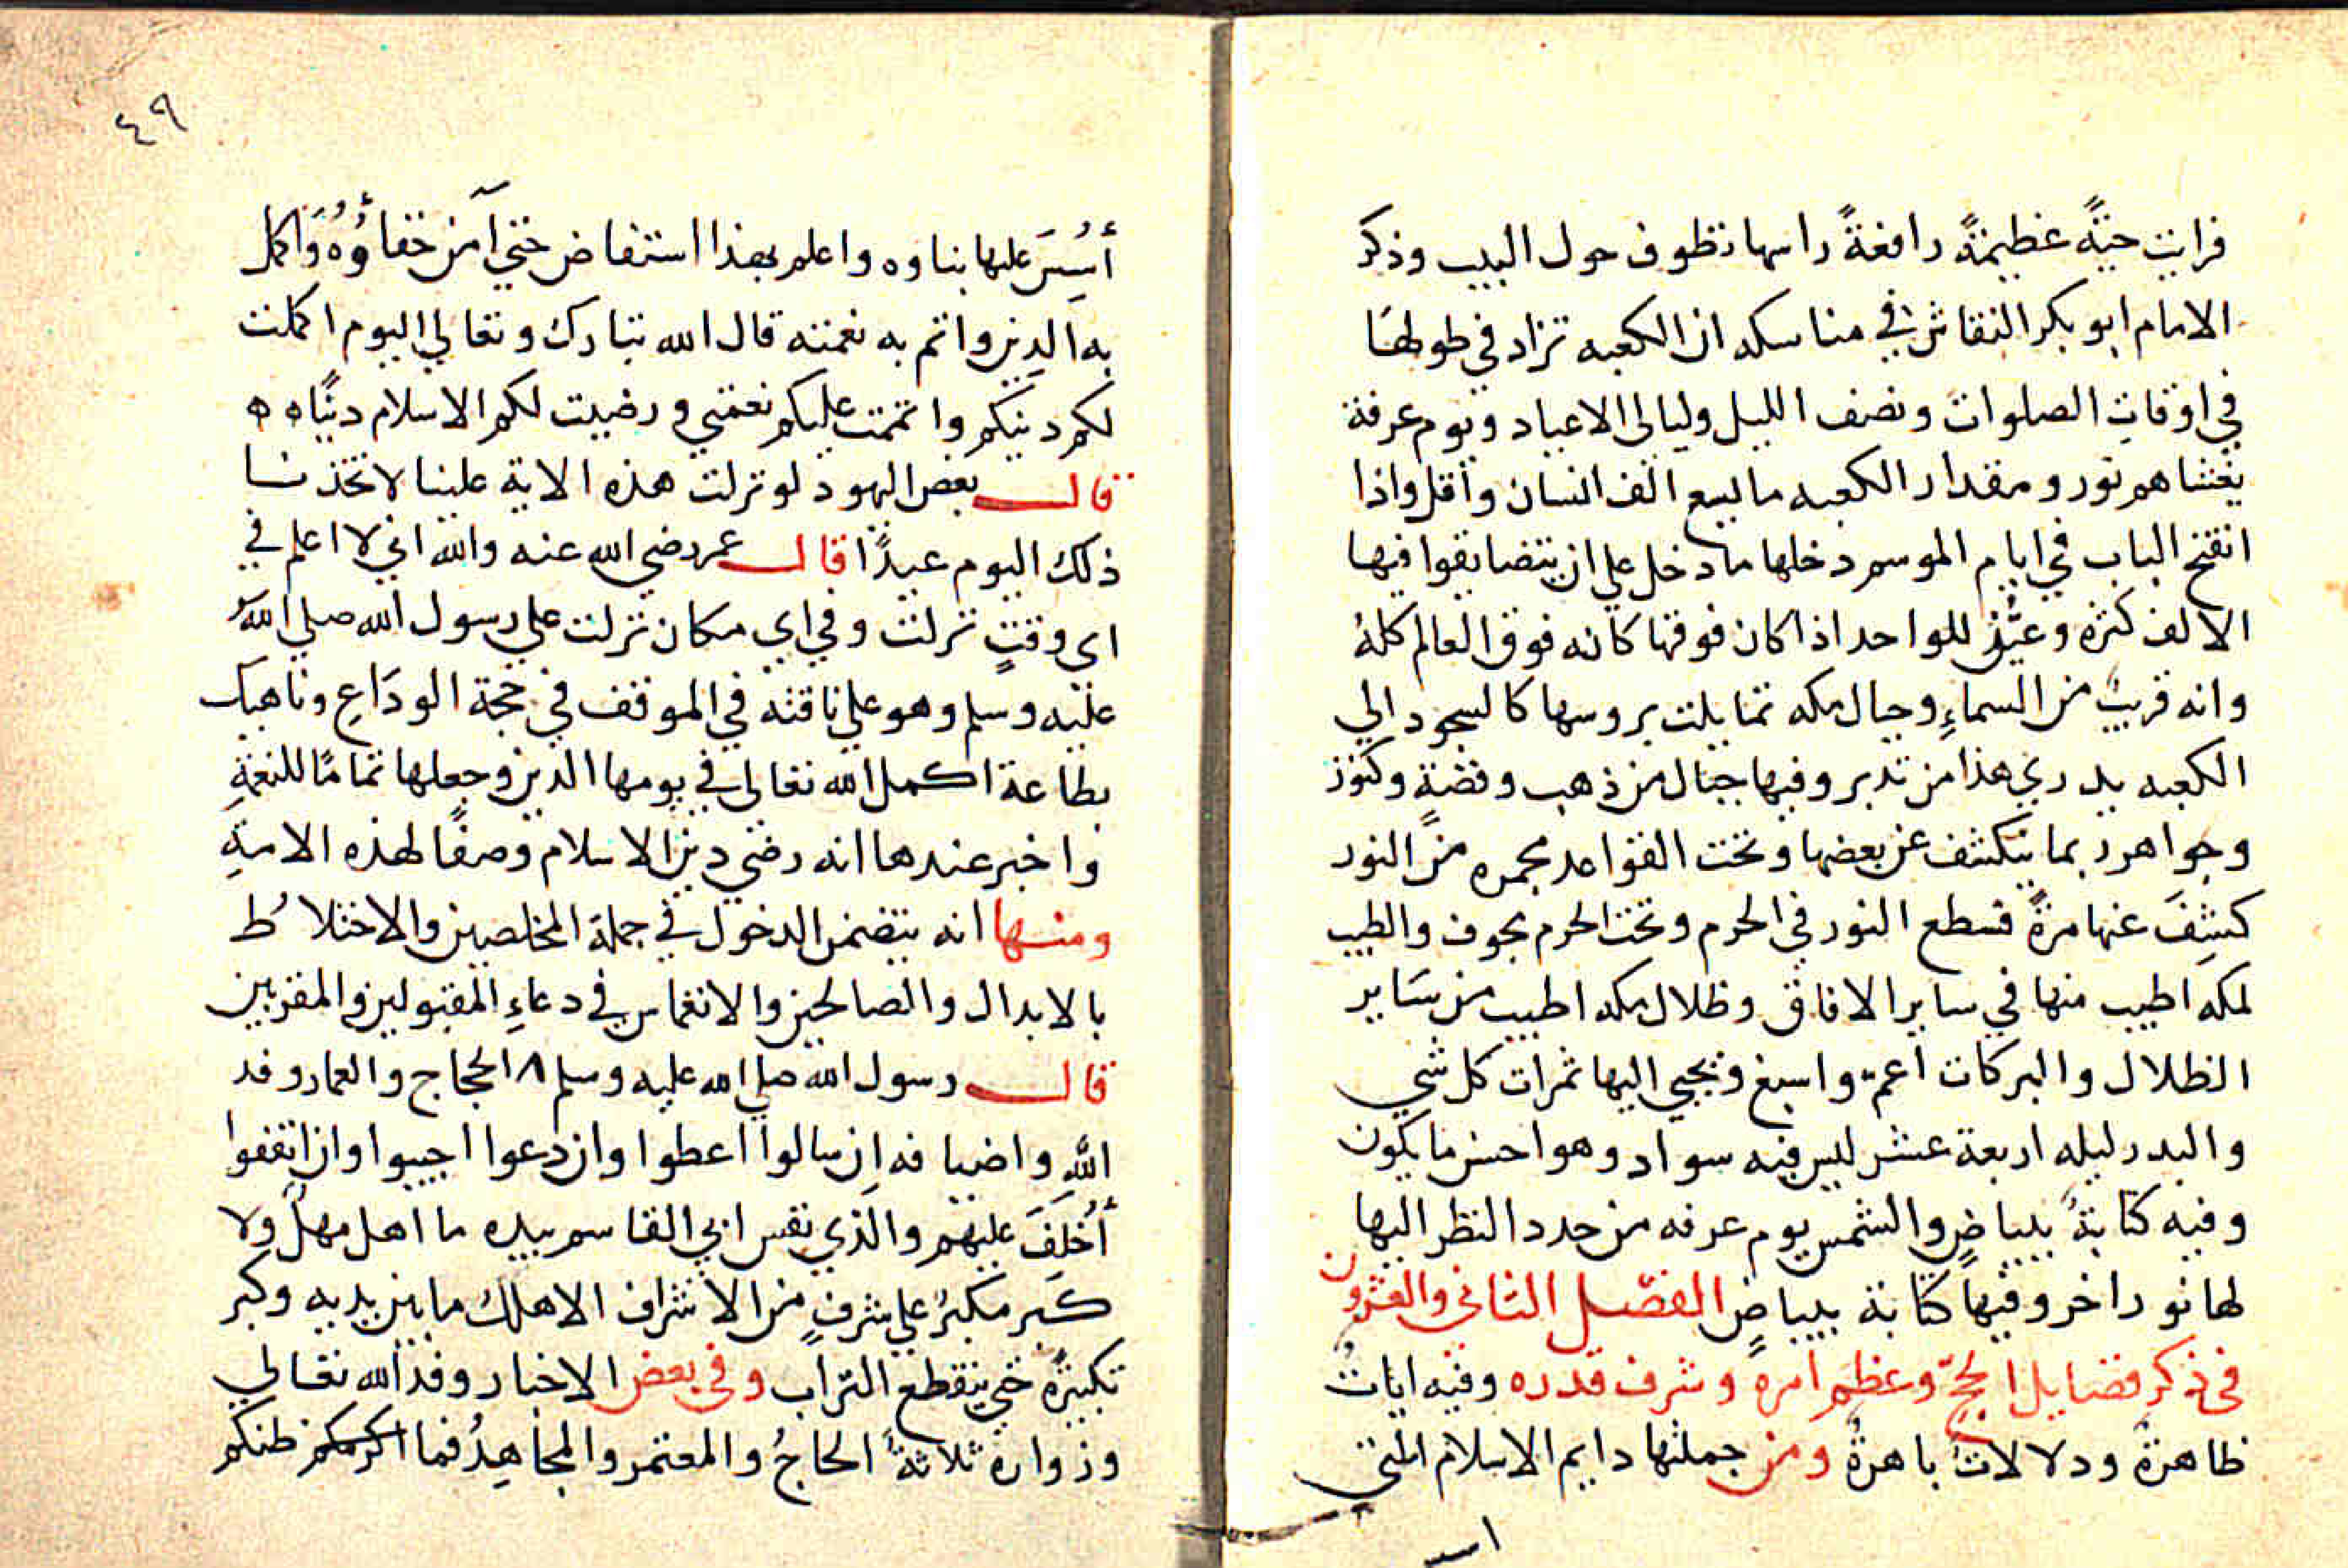 فرايت حيّةً عظيمةً رافعةً راسها تطوف حول البيت وذكر
الامام ابو بكر النقاش في مناسكه ان الكعبه تزاد في طولها
في اوقات الصلوات ونصف الليل وليالي الاعياد ويوم عرفة
يغشاهم نور ومقدار الكعبه ما ليسع الف انسان وأقل واذا
انفتح الباب في ايام الموسم دخلها ما دخل علي ان يتضايقوا فيها
الالف كثره للواحد اذا كان فوقها كانه فوق العالم كله
وانه قريب من السماءِ وجبال مكه تمايلت بروسها كالسجود الي
الكعبه يدري هذا من تدبر وفيها جبال من ذهب وفضةٍ وكنوز
وجواهر ربما ينكشف عن بعضها وتحت القواعد مجمره من النور
كشِفَ عنها مرةً فسطع النور في الحرم وتحت الحرم بجوف والطيب
لمكه اطيب منها في ساير الافاق وظلال مكه اطيب من سَاير
الظلال والبركات اعم واسبغ ويجبي اليها ثمرات كل شي
والبدر ليله اربعة عشر ليس فيه سواد وهو احسن ما يكون
وفيه كتابةُ ببياضٍ والشمس يوم عرفه من حدد النظر اليها
لها نور اخر وفيها كتابة ببياضٍ الفصل الثاني والعشرون
في ذكر فضايل الحجّ وعظم امره وشرف قدره وفيه اياتٌ
ظاهرةٌ ودلالاتٌ باهرةٌ ومن جملتها دايم الاسلام التي
اسـ
٤٩
أُسِسَ عليها بناوه واعلم بهذا استفاض حتي آمن خفاؤُه وُاكمل
به الدين واتم به نعمته قال الله تبارك وتعالي اليوم اكملت
لكم دينكم واتممت عليكم نعمتي ورضيت لكم الاسلام دينًا ه ه
قال بعض اليهود لو نزلت هذه الاية علينا لاتخذنا
ذلك اليوم عيدًا قال عمر رضي الله عنه والله اني لا اعلم في
اي وقتٍ نزلت وفي اي مكان نزلت علي رسول الله صلي اللهُ
عليه وسلم وهو علي ناقته في الموقف في حجة الودَاعِ وناهيك
بطاعة اكمل الله تعالي في يومها الدين وجعلها تمامًا للنعمةِ
واخبر عندها انه رضي دين الاسلام وصفًا لهذه الامةِ
ومنها انه يتضمن الدخول في جملة المخلصين والاختلاط
بالابدال والصالحين والانغماس في دعاءِ المقبولين والمقربين
قال رسول الله صلي الله عليه وسلم ٨ الحجاج والعمار وفد
اللهِ واضيافه اِن سالوا اعطوا وان دعوا اجيبوا وان انفقوا
أُخلَفَ عليهم والذي نفس ابي القاسم بيده ما اهل مهلٌ ولا
كبر مكبرٌ علي شرفٍ من الاشراف الا هلل ما بين يديه وكبر
تكبيرًه حتي ينقطع التراب وفي بعض الاخبار وفد الله تعالي
وزواره ثلاثةً الحاجُ والمعتمر والمجاهِدُ فما اكرمكم ظنكم